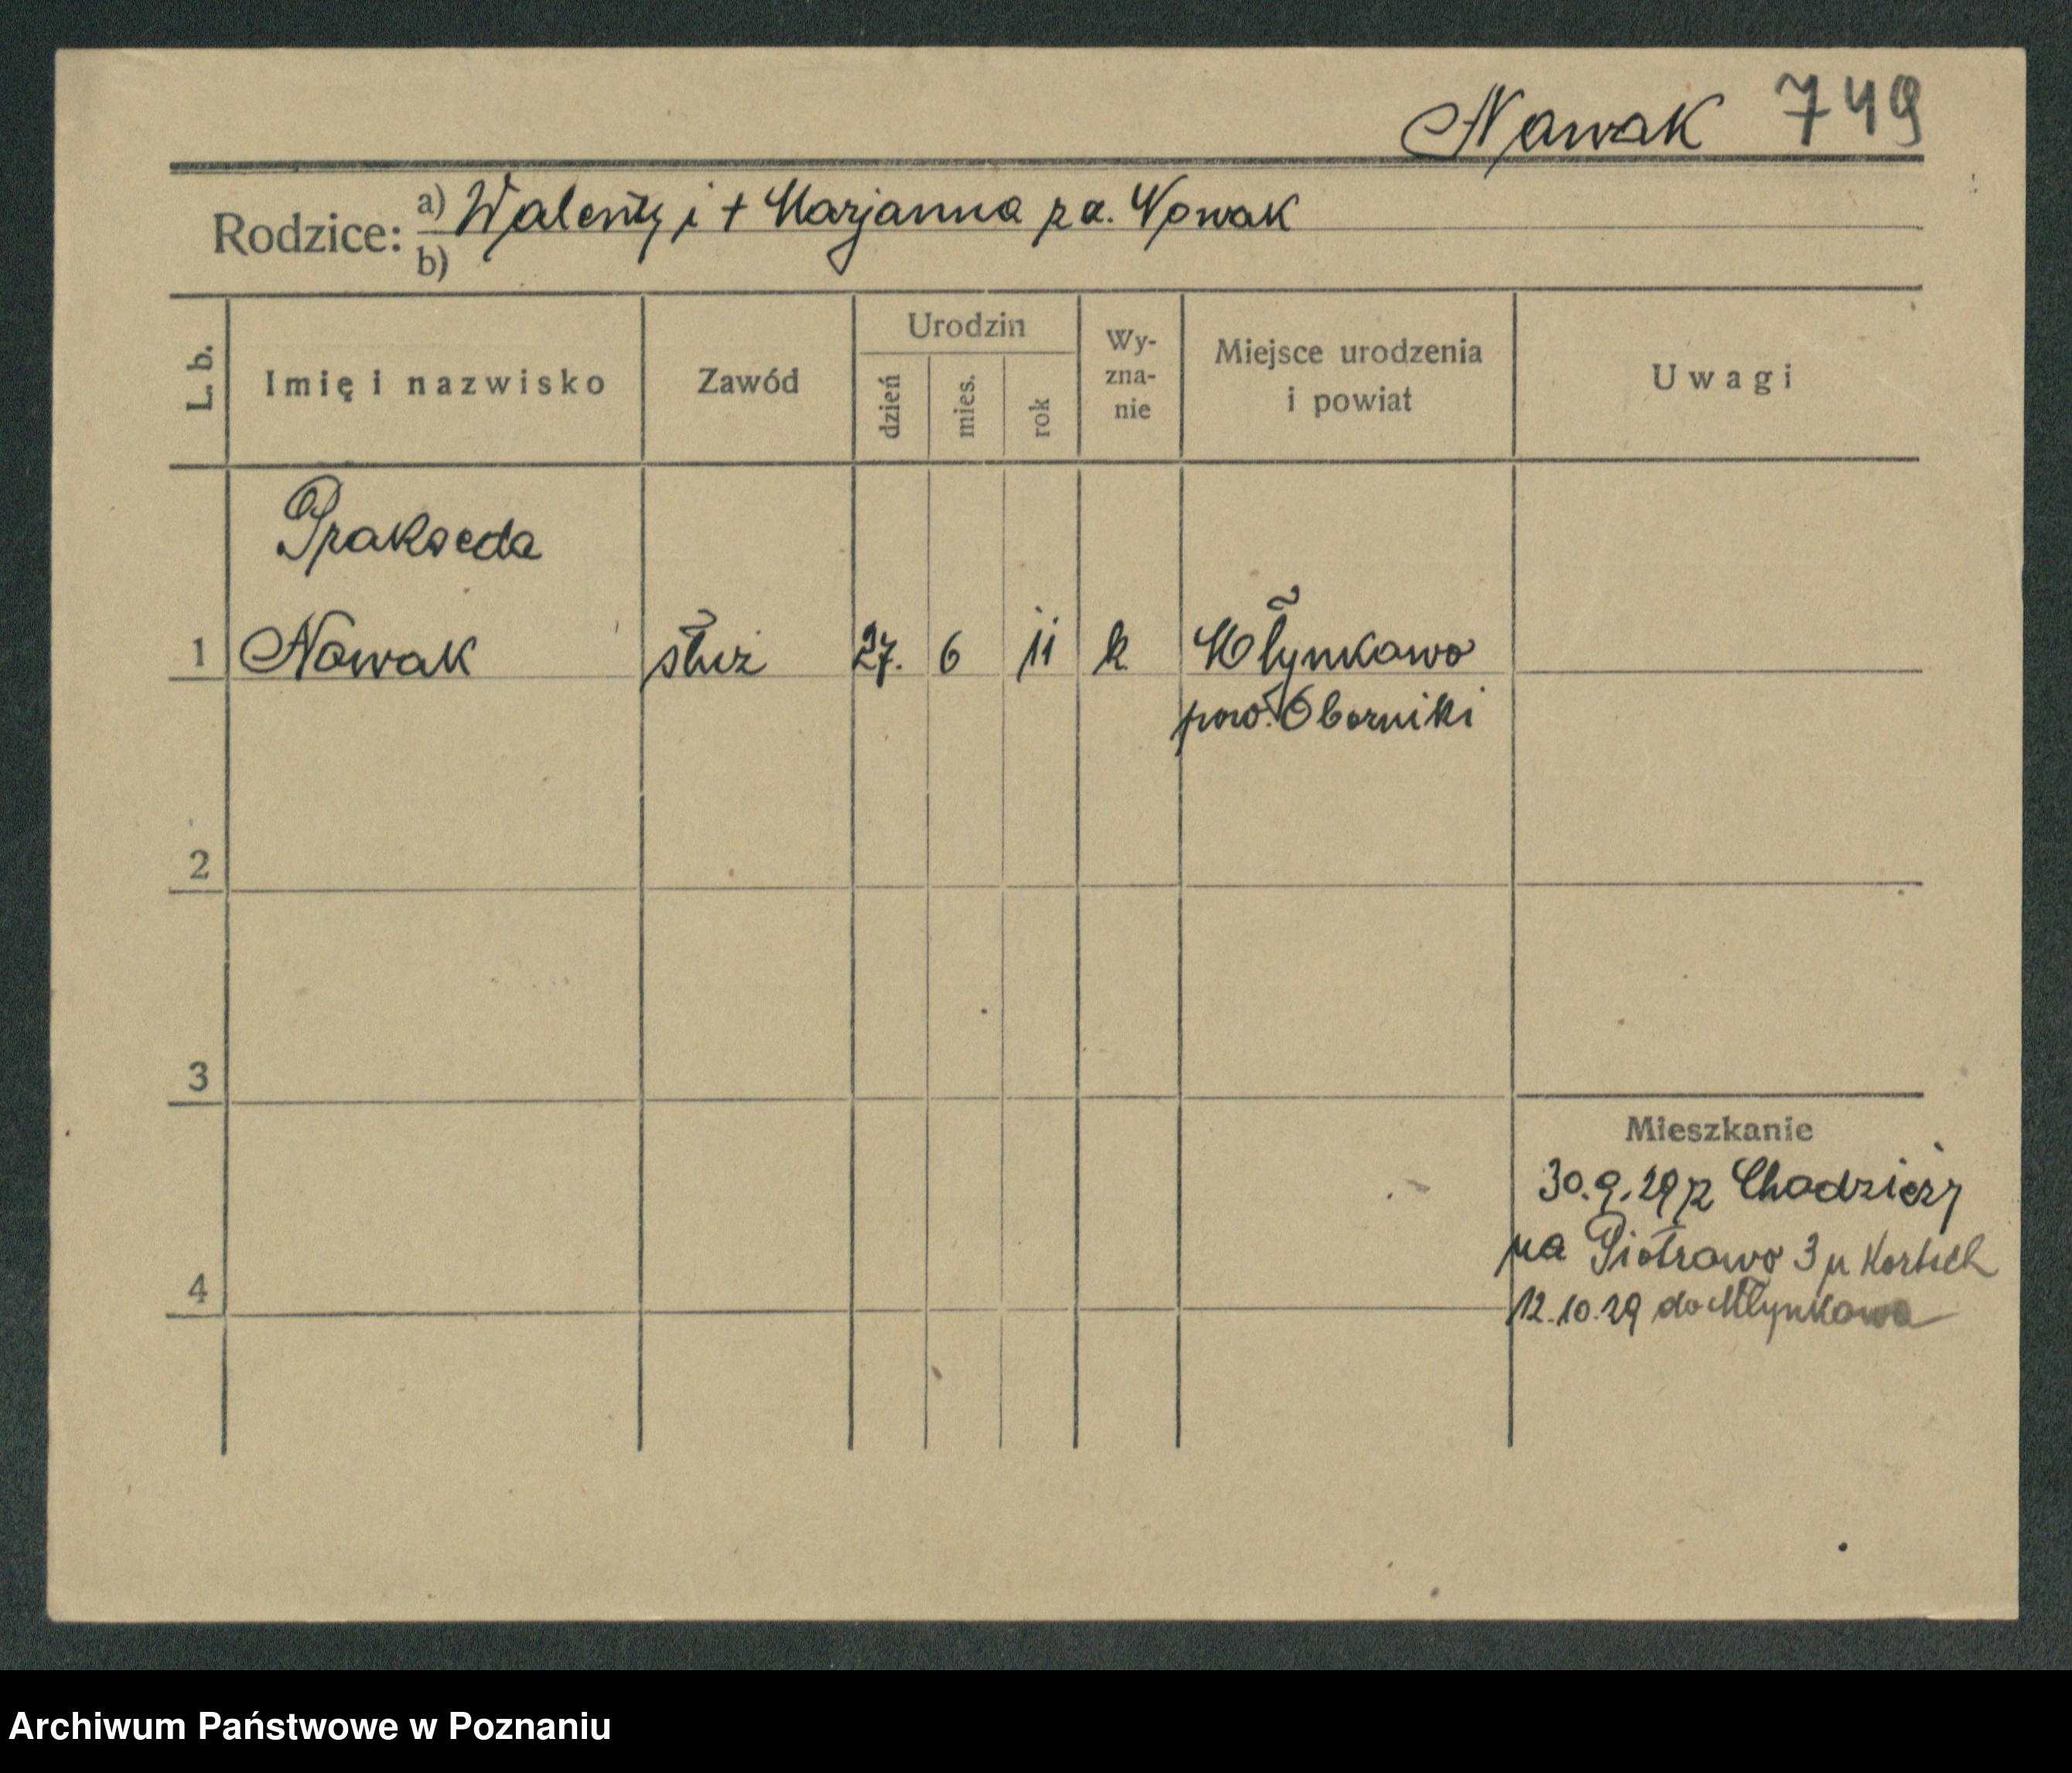 Nowak 749
Rodzice: a) Walenty i + Marjanna za. Nowak
b)
L. b.
Imię i nazwisko
Zawód
Urodzin
dzień
mies.
rok
Wy-
zna-
nie
Miejsce urodzenia
i powiat
Uwagi
Prakseda
1 Nowak służ 27. 6 11 k Młynkowo
pow. Oborniki
2
3
Mieszkanie
30.9.29 z Chodzieży
na Piotrowo 3 u
4
12.10.29 do Młynkowa
Archiwum Państwowe w Poznaniu